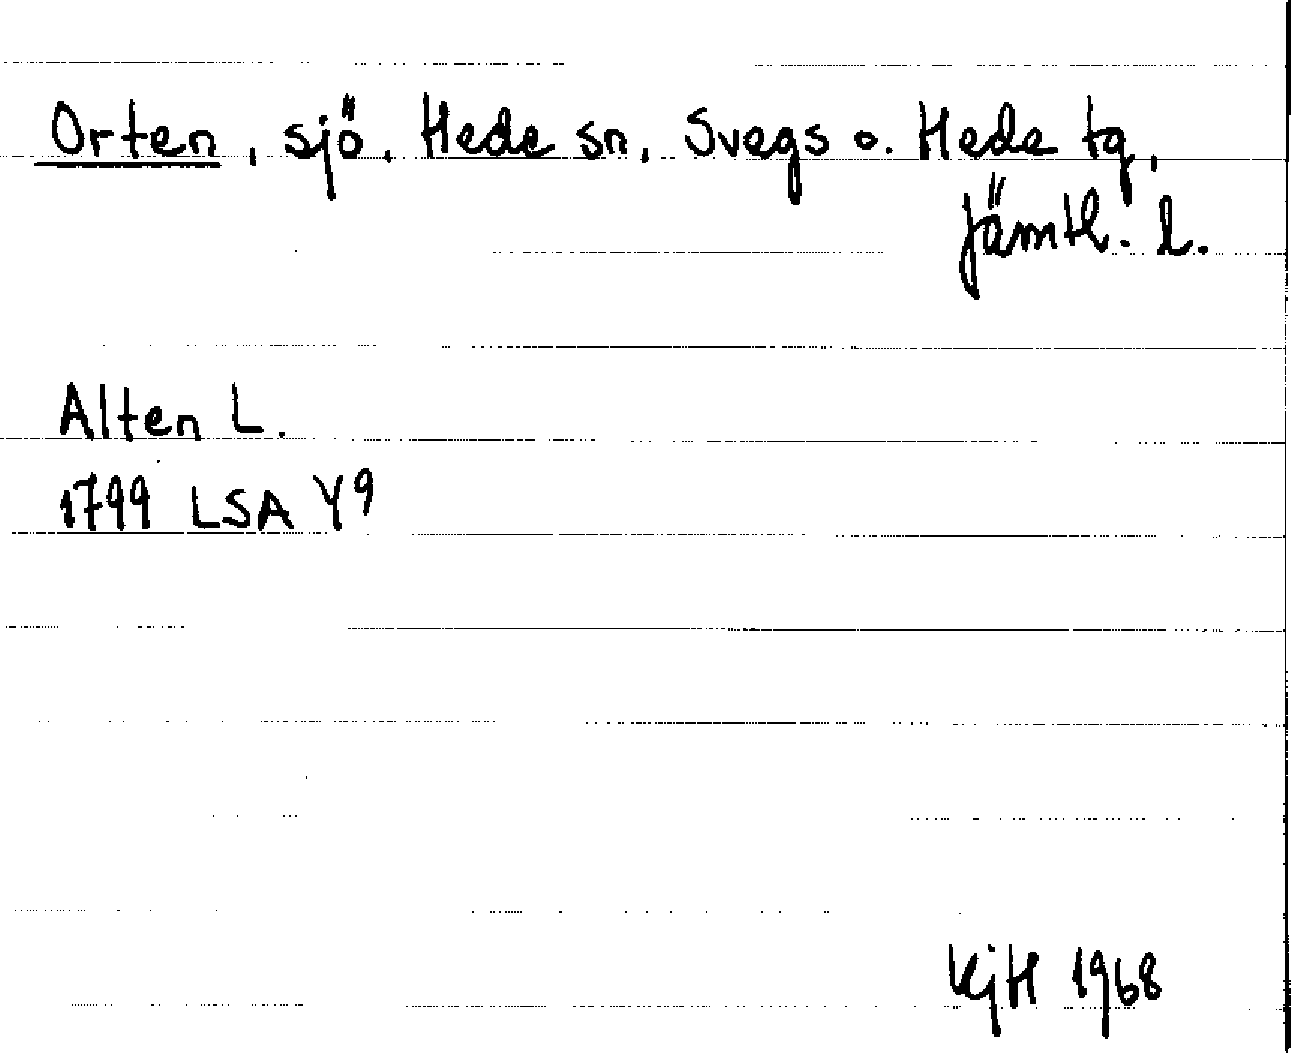 Orten, sjö. Hede sn, Svegs o. Hede tg,
Jämtl. l.
Alten L.
1799 LSA Y9
KjH 1968